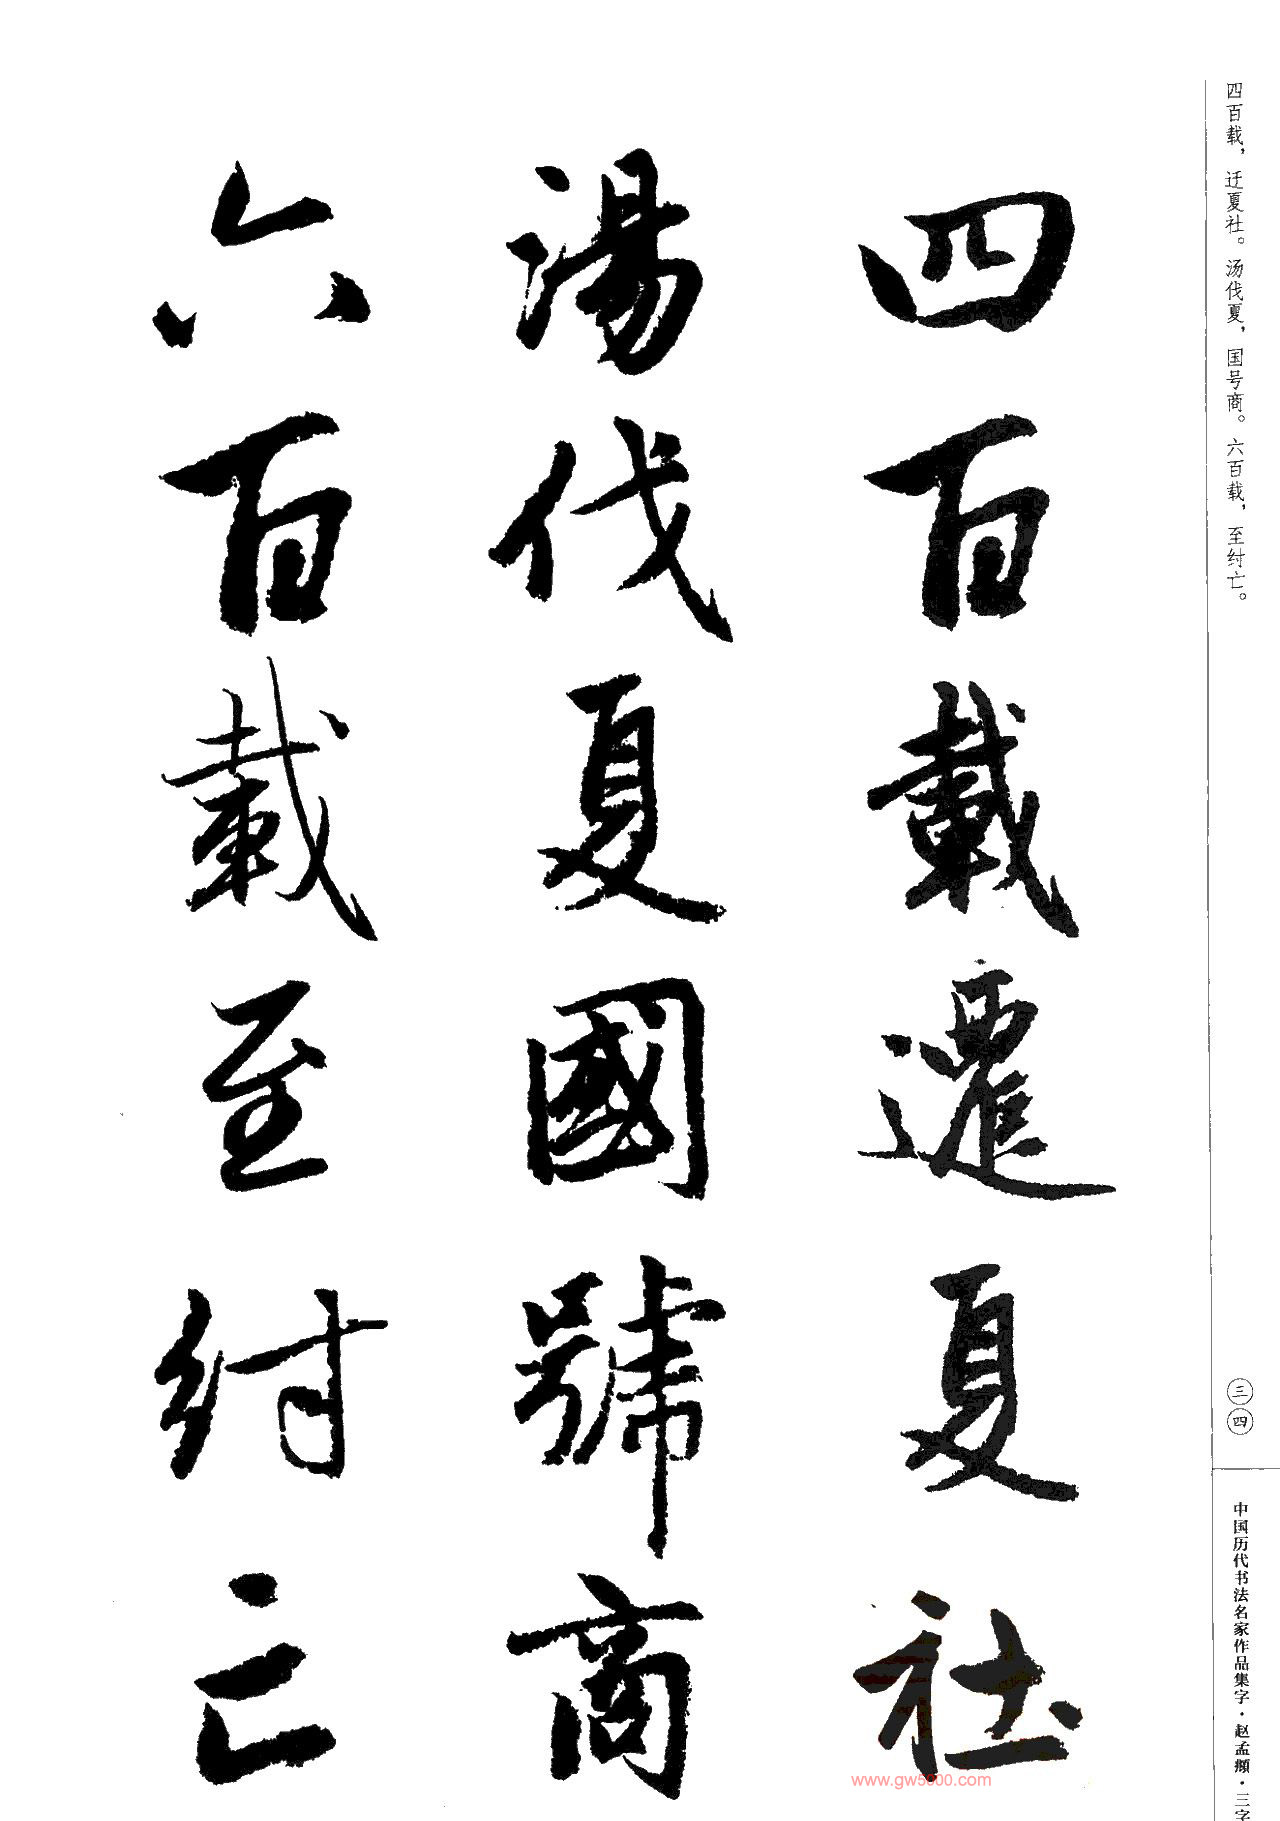 四百载，迁夏社。汤伐夏，国号商。六百载，至纣亡。
三四
中国历代书法名家作品集字·赵孟頫·三字
四百載遷夏社
湯伐夏國號商
六百載至紂亡
www.gw5000.com